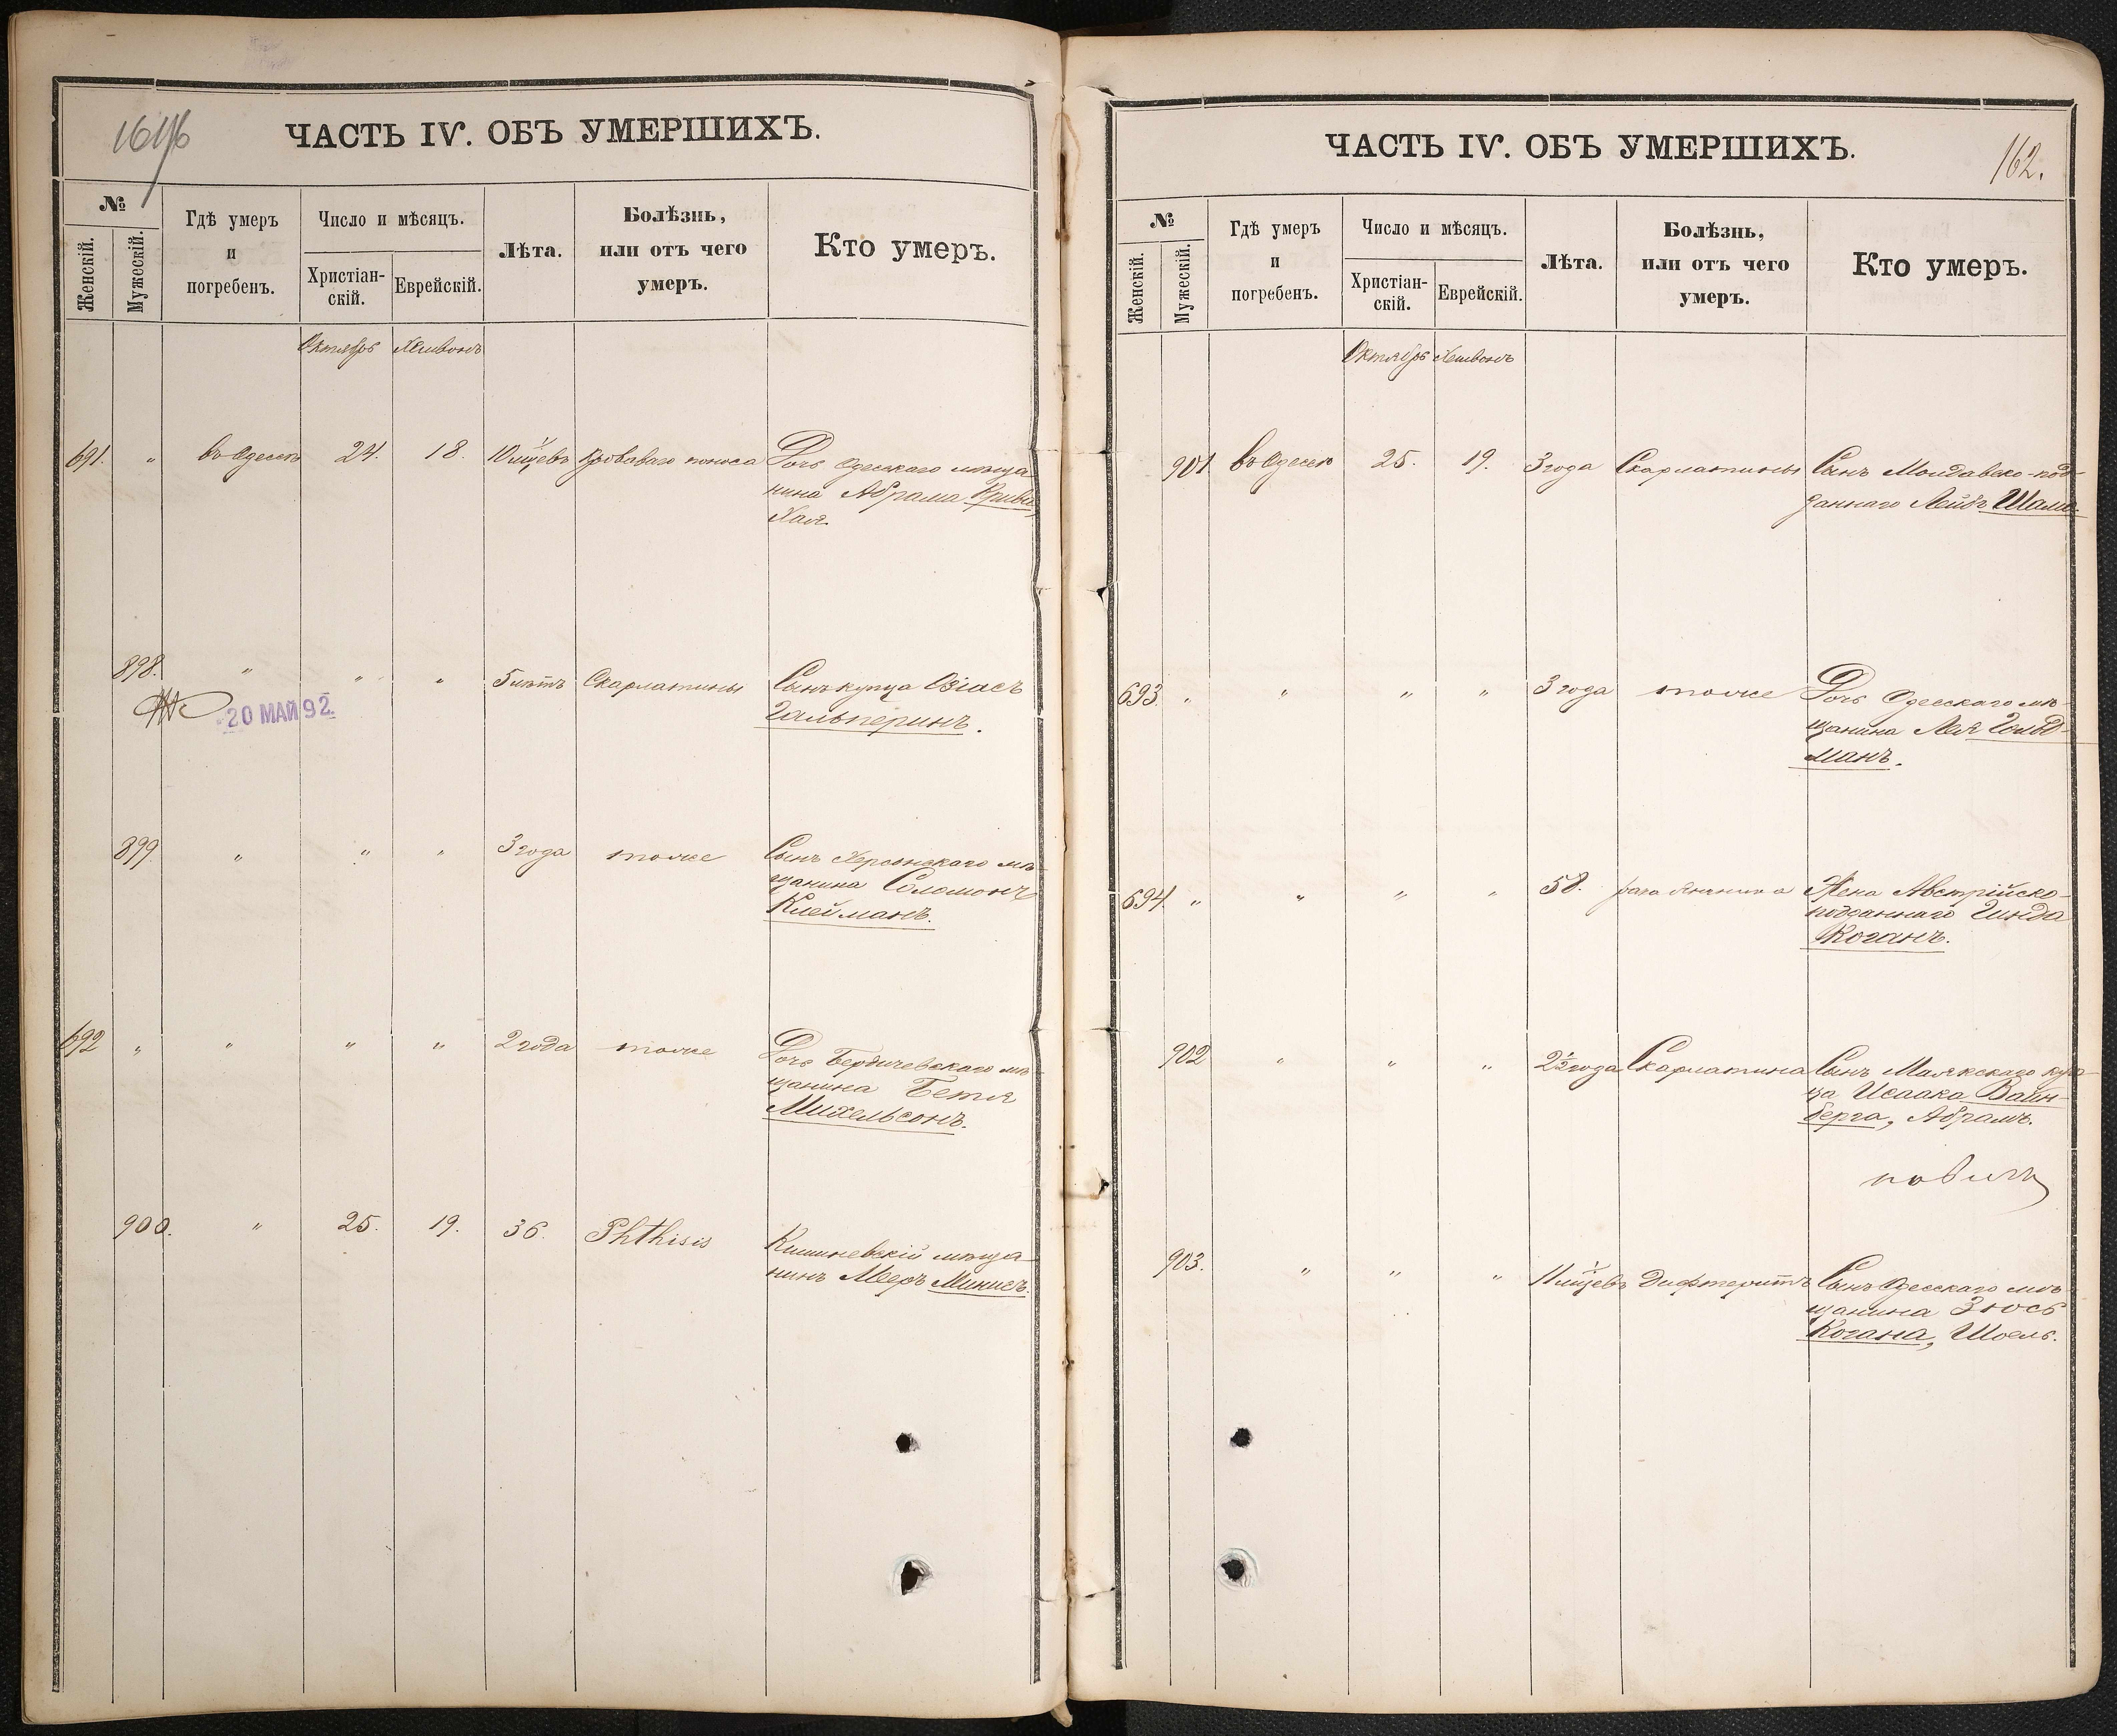 ЧАСТЬ IV. ОБЪ УМЕРШИХЪ.
№
Женскій.
Мужескій.
Гдѣ умеръ
и
погребенъ.
Число и мѣсяцъ.
Христіан-
скій.
Еврейскій.
Лѣта.
Болѣзнь,
или отъ чего
умеръ.
Кто умеръ.
Октябрь Хешвонъ
691. " въ Одессѣ 24. 18. 10 мцевъ Кроваваго поноса Дочь Одесскаго мѣща
нина Абрама
Хая.
898. " " " 5 лѣтъ Скарлатины Сынъ купца Озіасъ
Гальперинъ.
20 МАЙ 92
899 " " " 3 года тоже Сынъ Херсонскаго мѣ
щанина Соломонъ
Клейманъ.
692 " " " " 2 года тоже Дочь Бердичевскаго мѣ
щанина Бетя
Михельсонъ.
900. " 25. 19. 36. Phthisis Кишиневскій мѣща
нинъ Мееръ
ЧАСТЬ IV. ОБЪ УМЕРШИХЪ.
162.
№
Женскій.
Мужескій.
Гдѣ умеръ
и
погребенъ.
Число и мѣсяцъ.
Христіан-
скій.
Еврейскій.
Лѣта.
Болѣзнь,
или отъ чего
умеръ.
Кто умеръ.
Октябрь Хешвонъ
901. въ Одессѣ 25. 19. 3 года Скарлатины Сынъ Молдавско-под-
даннаго Лейбъ
693. " " " " 3 года тоже Дочь Одесскаго мѣ-
щанина Лея Гольд-
манъ.
694. " " " " 58. рака Жена Австрійско-
подданнаго Гинда
Коганъ.
902 " " " 2½ года Скарлатина Сынъ Маякскаго куп
ца Исаака Вайн-
берга, Абрамъ.
903. " " " 11 мцевъ Дифтеритъ Сынъ Одесскаго мѣ
щанина Зюсь
Когана, Шоель.